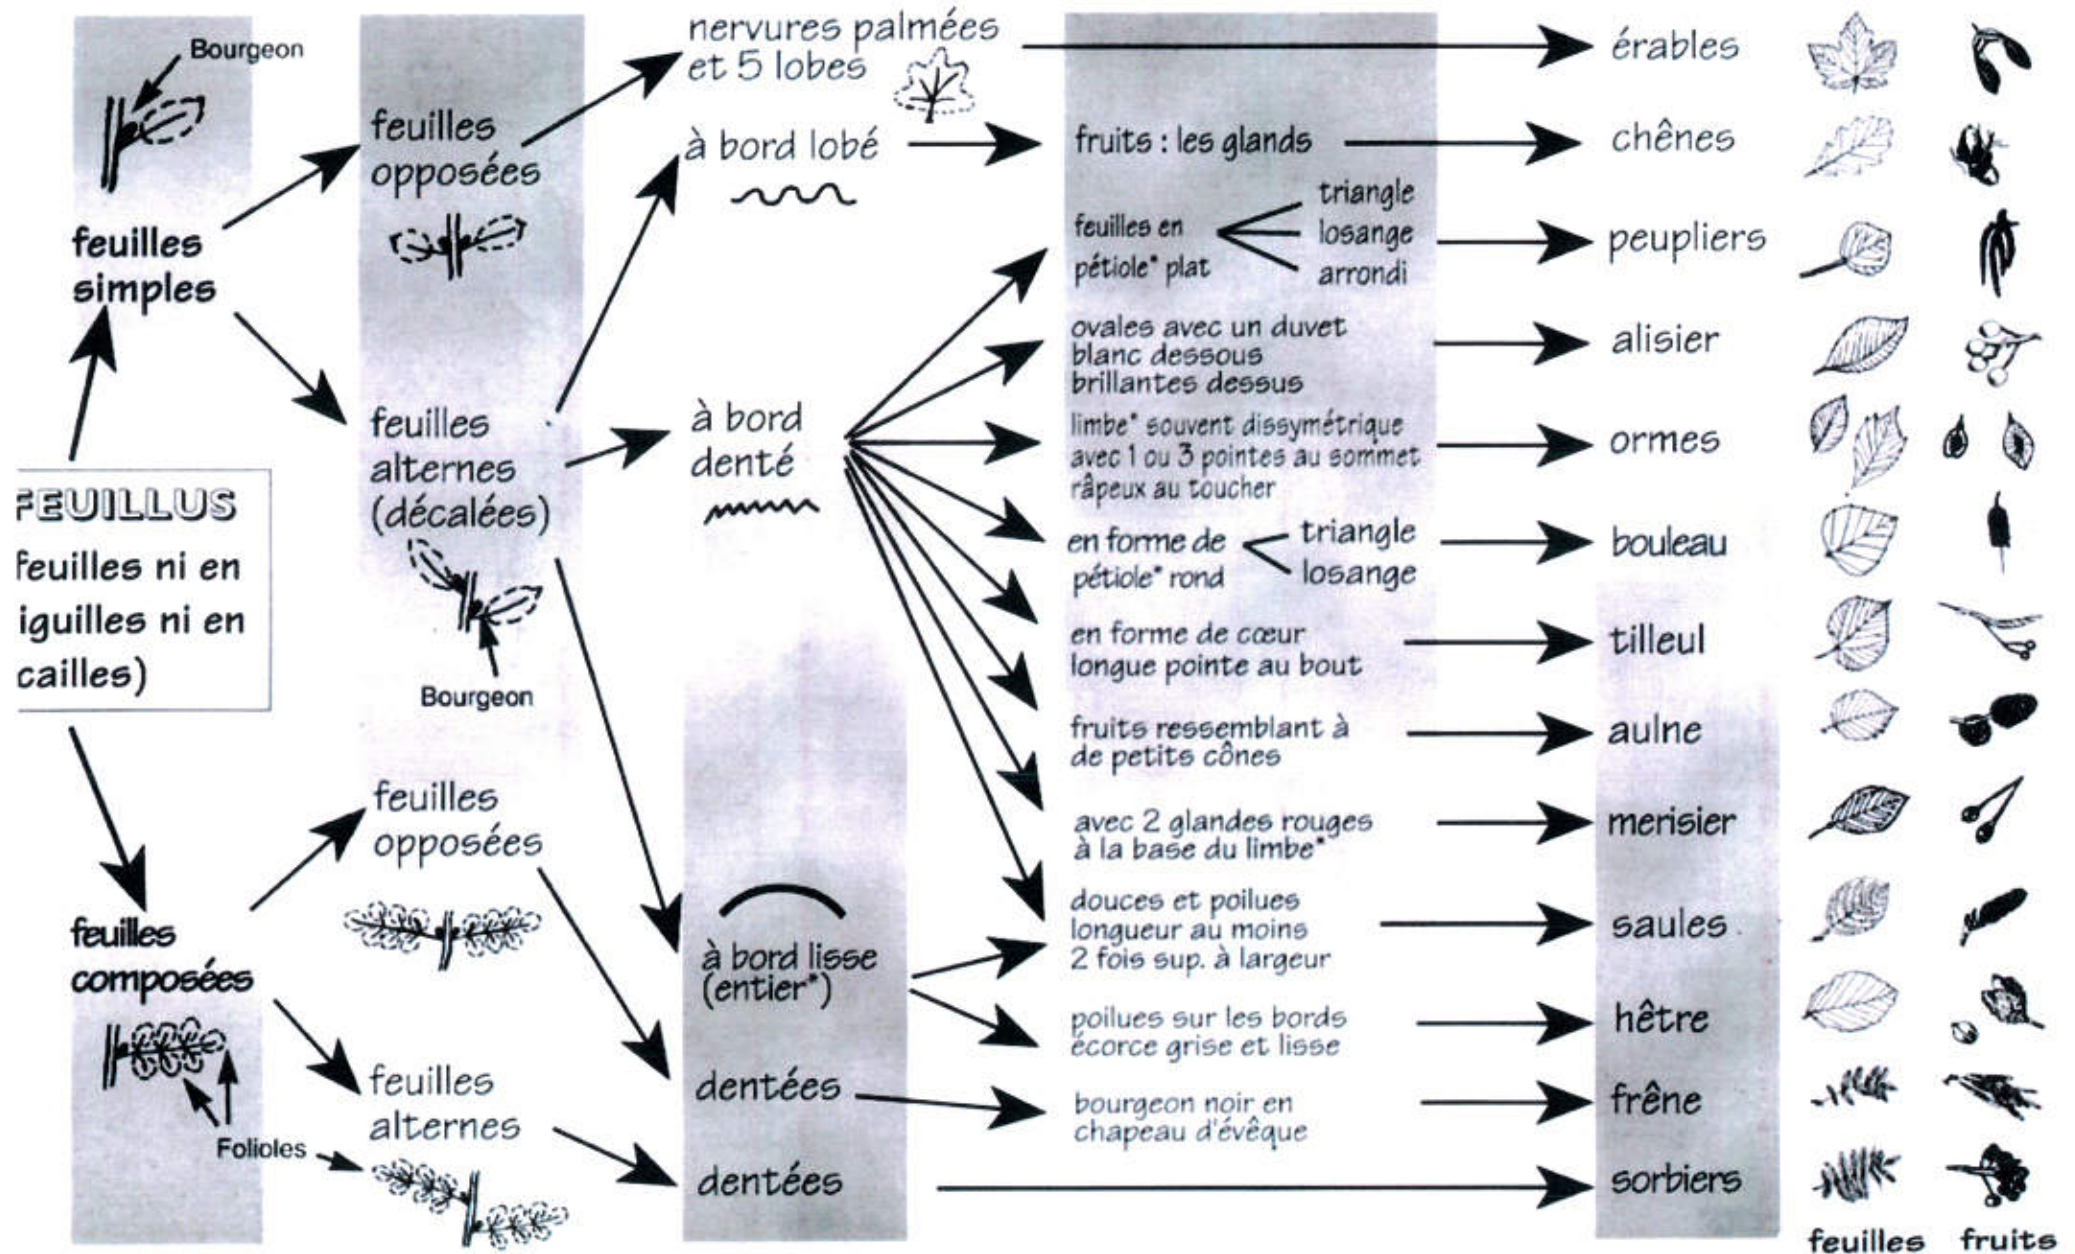 Bourgeon
feuilles
simples
FEUILLUS
feuilles ni en
iguilles ni en
cailles)
feuilles
composées
Folioles
feuilles
opposées
feuilles
alternes
(décalées)
Bourgeon
feuilles
opposées
feuilles
alternes
nervures palmées
et 5 lobes
à bord lobé
à bord
denté
à bord lisse
(entier*)
dentées
dentées
fruits : les glands
feuilles en
pétiole* plat
triangle
losange
arrondi
ovales avec un duvet
blanc dessous
brillantes dessus
limbe* souvent dissymétrique
avec 1 ou 3 pointes au sommet
râpeux au toucher
en forme de
pétiole* rond
triangle
losange
en forme de cœur
longue pointe au bout
fruits ressemblant à
de petits cônes
avec 2 glandes rouges
à la base du limbe*
douces et poilues
longueur au moins
2 fois sup. à largeur
poilues sur les bords
écorce grise et lisse
bourgeon noir en
chapeau d'évêque
érables
chênes
peupliers
alisier
ormes
bouleau
tilleul
aulne
merisier
saules
hêtre
frêne
sorbiers
feuilles fruits